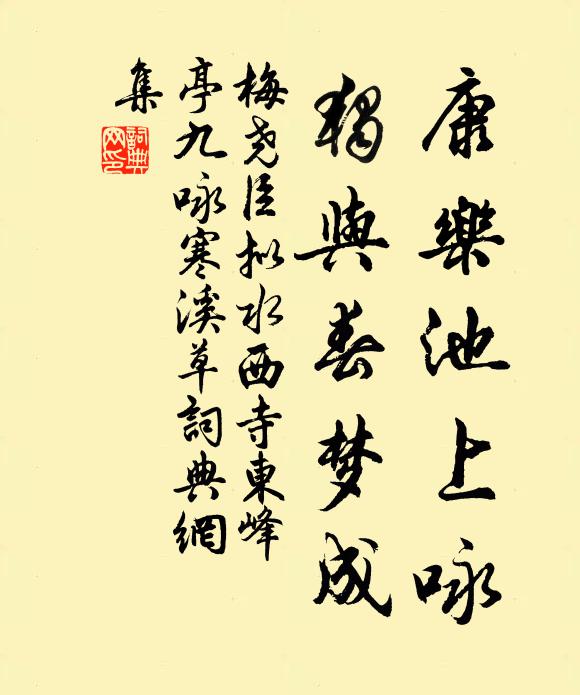 康樂池上咏
獨與春梦成
梅尧臣拟水西寺東峰
亭九咏寒溪草詞典網
集
詞典
网印